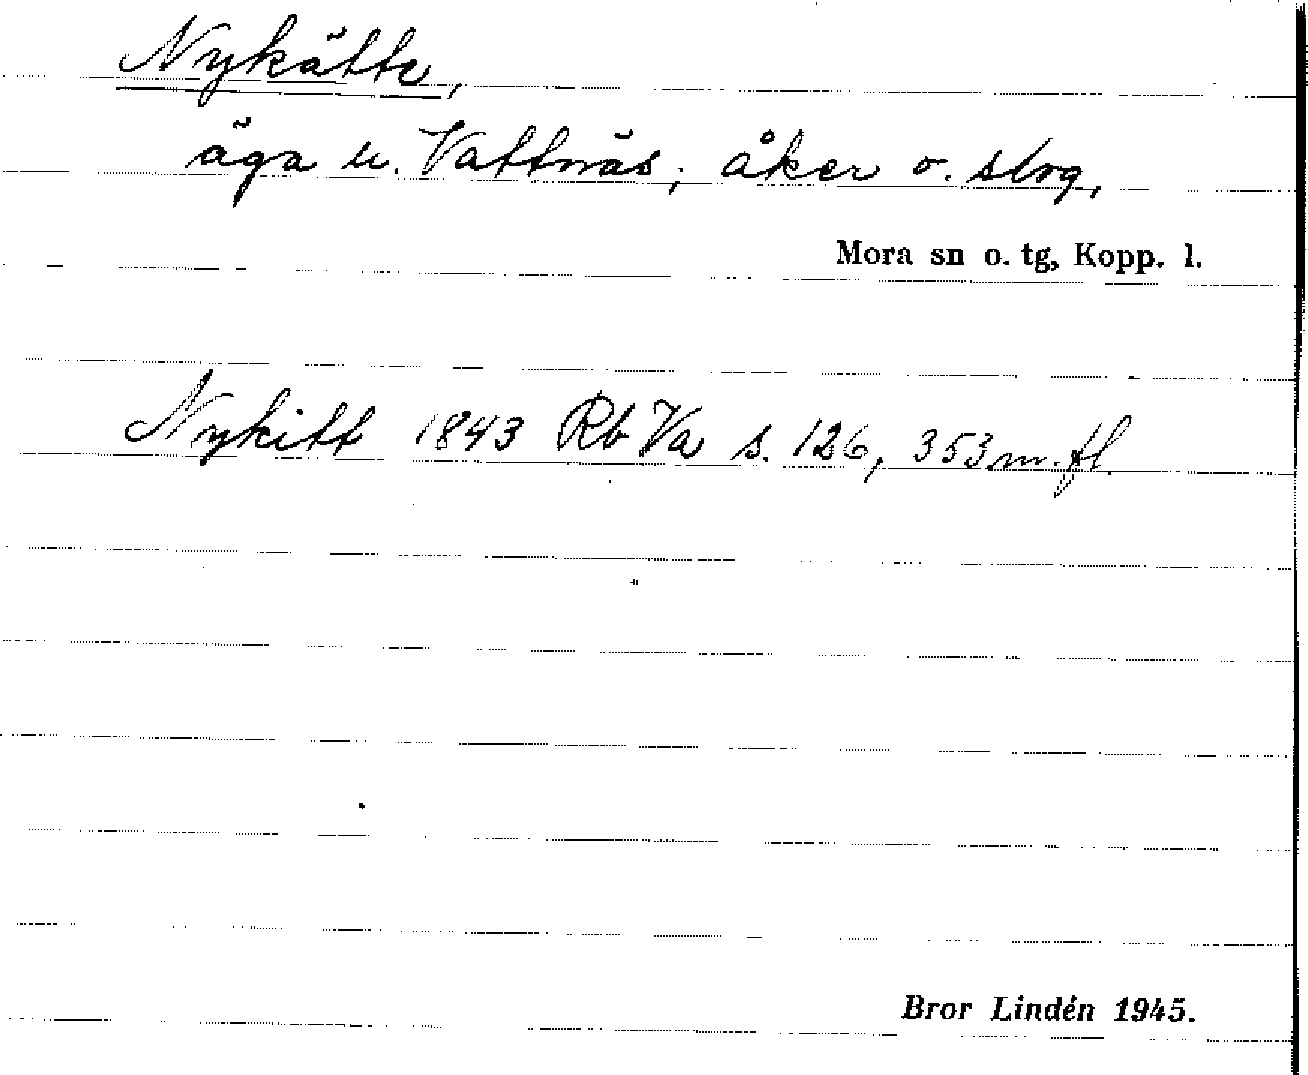 Nykätte,
äga u. Vattnäs; åker o. slog,
Mora sn o. tg, Kopp. l.
Nykitt 1843 Rb Va s. 126, 353 m. fl.
Bror Lindén 1945.